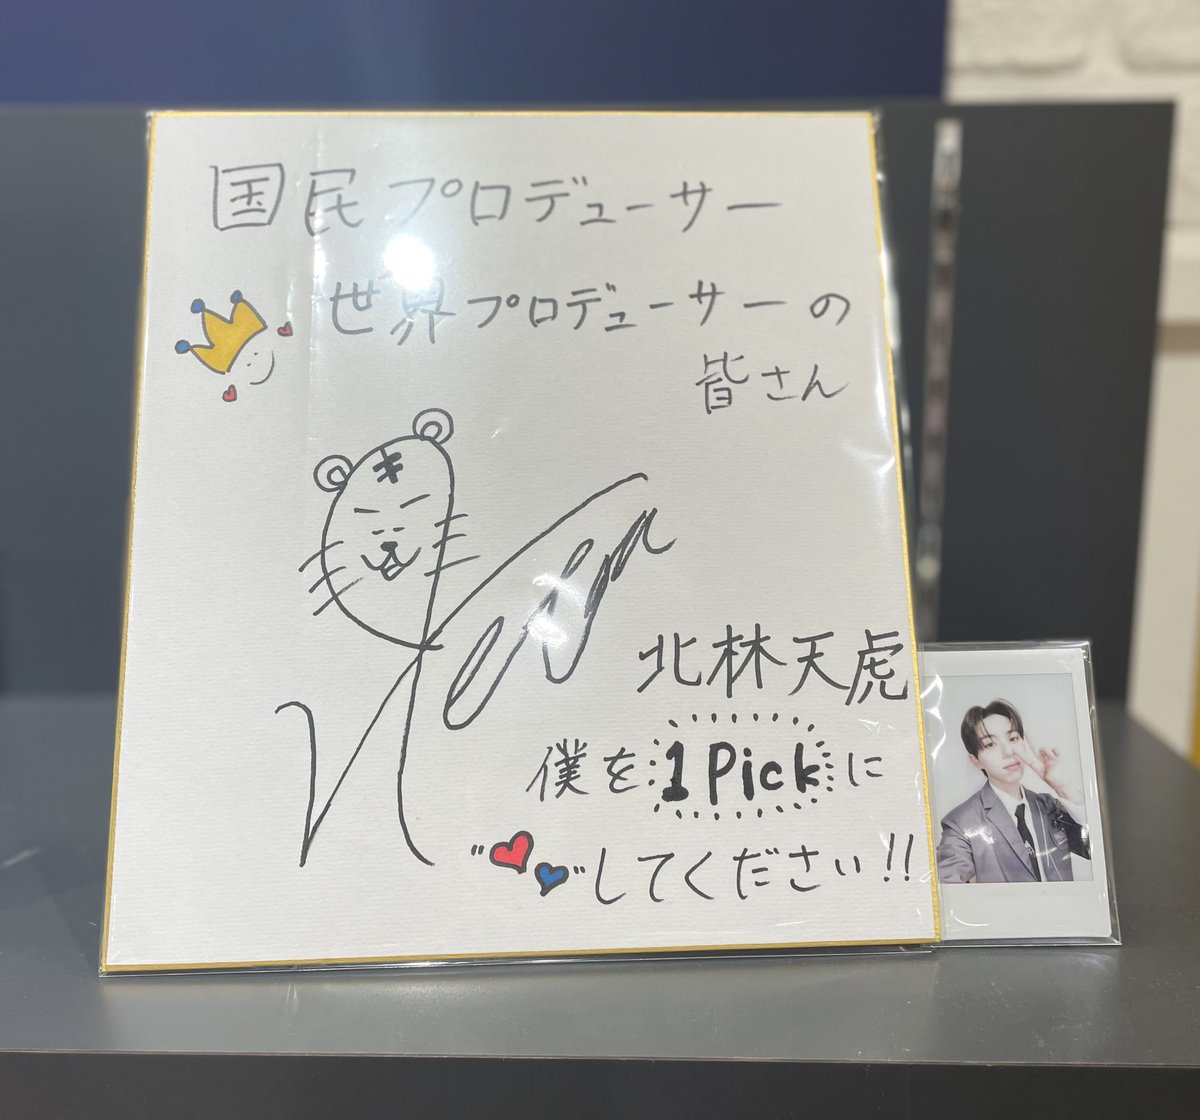 国民プロデューサー
世界プロデューサーの
皆さん
北林天虎
僕を1Pickに
"してください!!